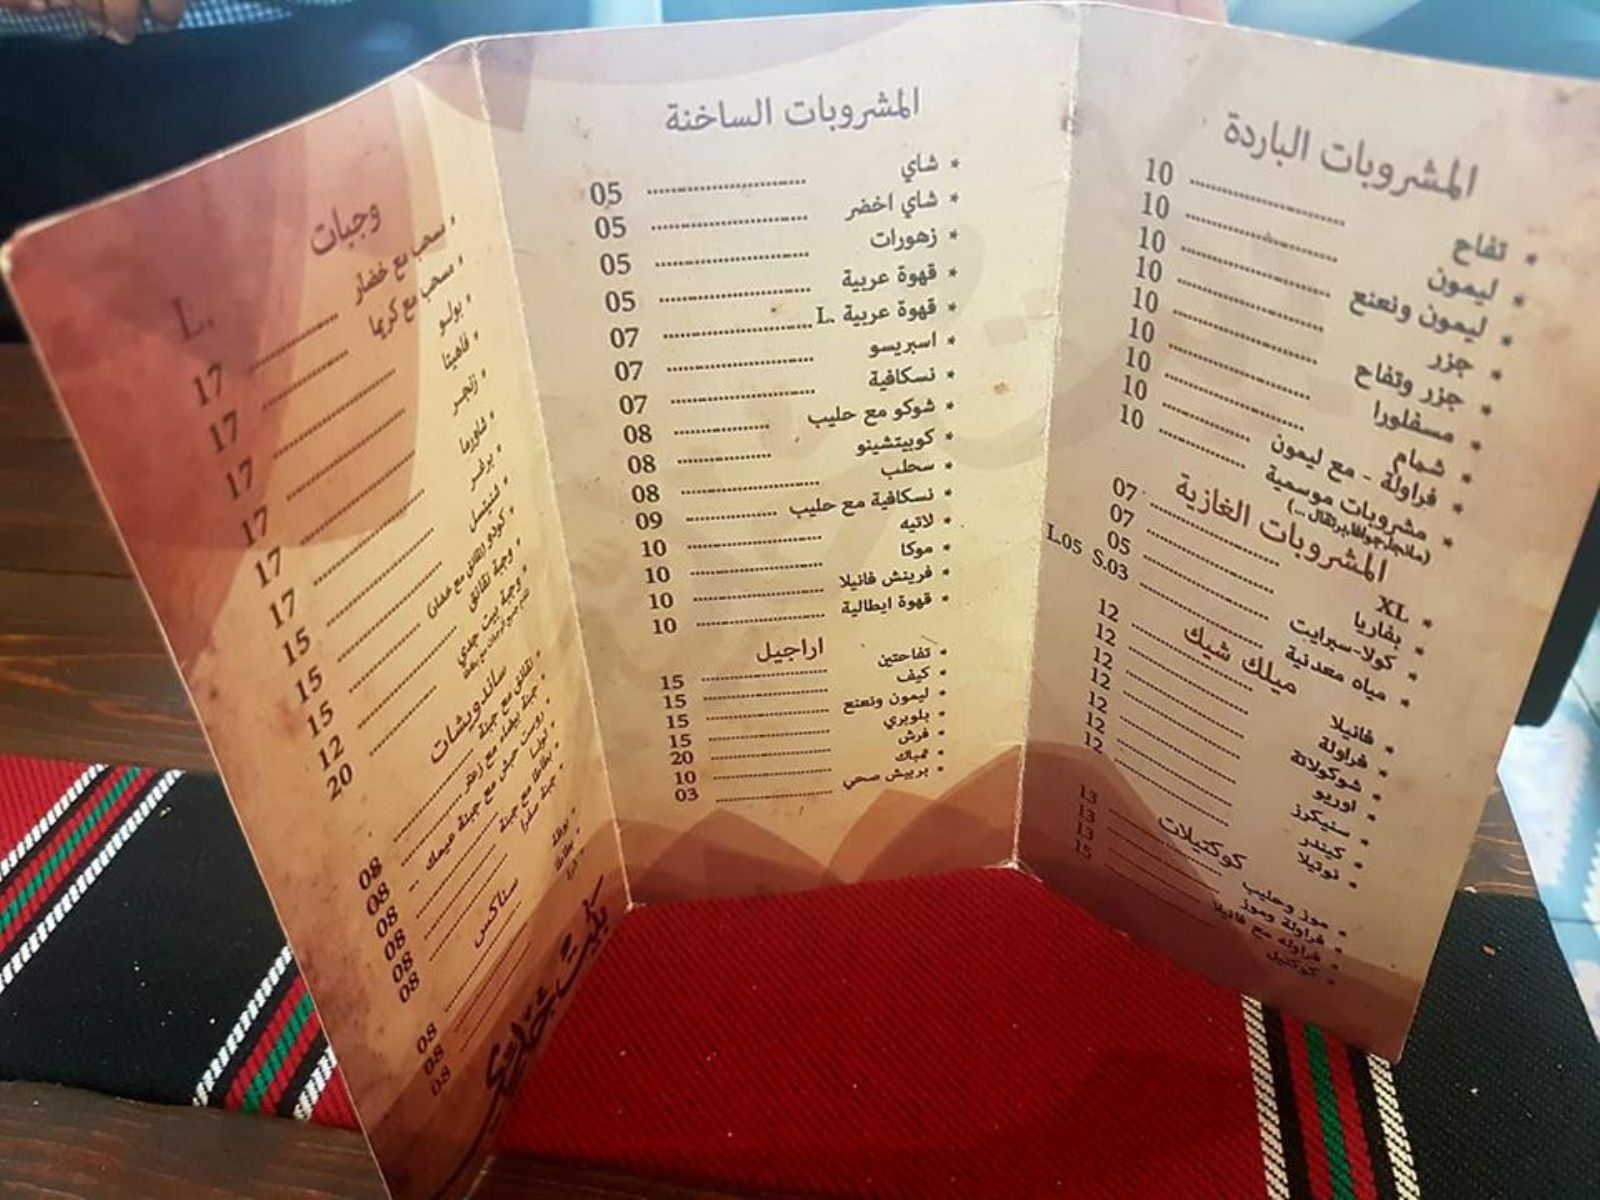 المشروبات الباردة
* تفاح 10
* ليمون 10
* ليمون ونعنع 10
* جزر 10
* جزر وتفاح 10
* مسفلورا 10
* شمام 10
* فراولة - مع ليمون 10
* مشروبات موسمية 10
(مانجا،جوافا،برتقال ...)
المشروبات الغازية
* XL 07
* بفاريا 07
* كولا-سبرايت 05
* مياه معدنية L.05 S.03
ميلك شيك
* فانيلا 12
* فراولة 12
* شوكولاتة 12
* اوريو 12
* سنيكرز 12
* كيندر 12
* نوتيلا 12
كوكتيلات
* موز وحليب 13
* فراولة وموز 13
* فراولة مع فانيلا 13
* كوكتيل 15
المشروبات الساخنة
* شاي 05
* شاي اخضر 05
* زهورات 05
* قهوة عربية 05
* قهوة عربية .L 07
* اسبريسو 07
* نسكافية 07
* شوكو مع حليب 08
* كوبيتشينو 08
* سحلب 08
* نسكافية مع حليب 09
* لاتيه 10
* موكا 10
* فرينش فانيلا 10
* قهوة ايطالية 10
اراجيل
* تفاحتين 15
* كيف 15
* ليمون ونعنع 15
* بلوبري 15
* فرش 20
* تمباك 10
* بربيش صحي 03
وجبات
L.
* سحب مع خضار 17
* مسحب مع كريما 17
* بولو 17
* فاهيتا 17
* زنجر 17
* شاورما 17
* برغر 15
* شنيتسل 15
* كوردو 15
* وجبة نقانق 12
* وجبة بيت جدي 20
ساندويشات
* نقانق مع جبنة 08
* جبنة بيضاء مع زعتر 08
* روست حبش مع جبنة 08
* تونا 08
* بطاطا مع جبنة 08
* جبنة صفرا 08
سناكس
08
* بطاطا 08
08
بيت جدي